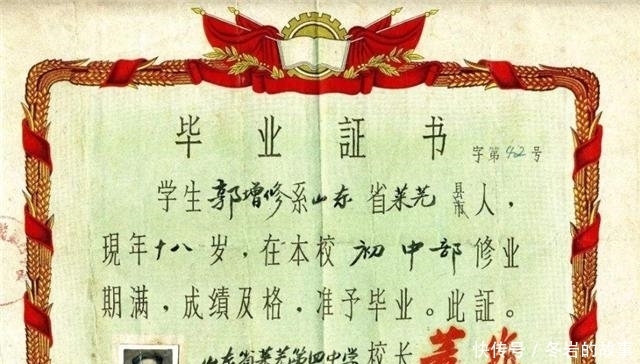 毕业証书
字第42号
学生郭增修系山东省莱芜县市人，
現年十八岁，在本校初中部修业
期满，成绩及格，准予毕业。此証。
山东省莱芜第四中学校长
快传号/冬岩的故事